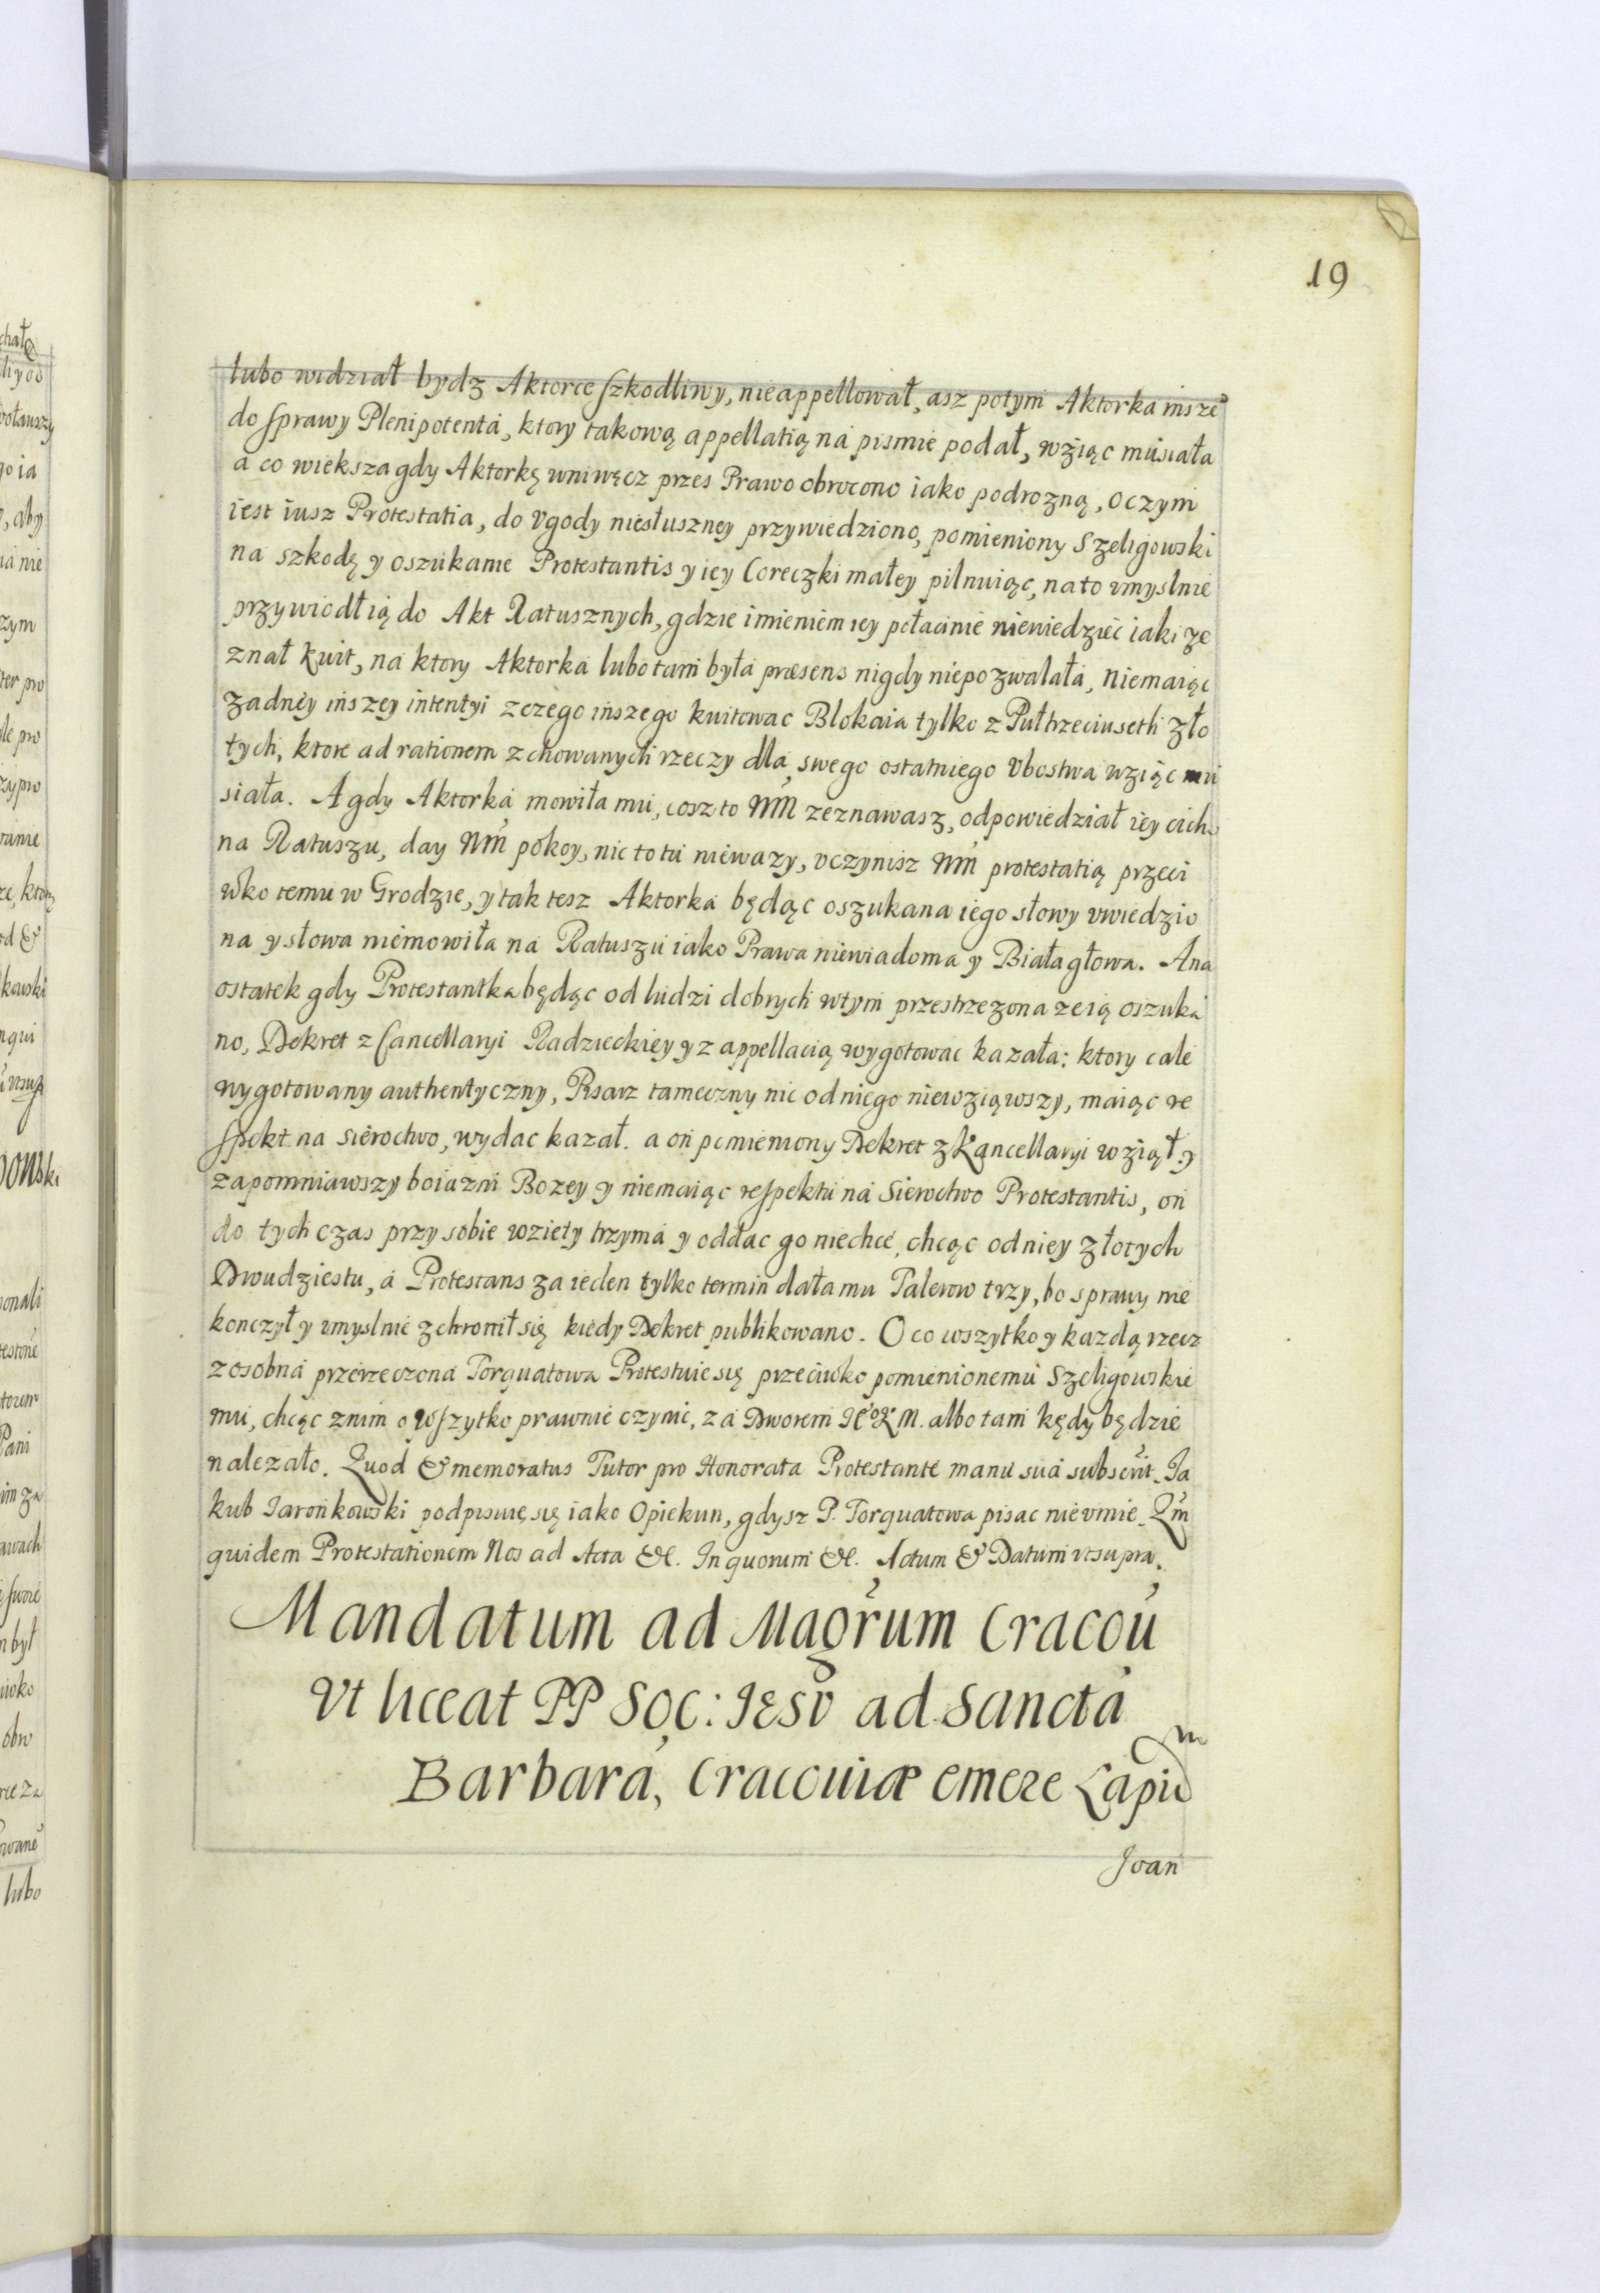 19
lubo widział bydz Aktorce szkodliwy, nieappellował, asz potym Aktorka insze
do sprawy Plenipotenta, ktory takową appellatią na pismie podał, wziąc musiała
a co wieksza gdy Aktorkę wniwęcz przes Prawo obrocono iako podrozną, o czym
iest iusz Protestatia, do Vgody niesłuszney przywiedziono, pomieniony Szeligowski
na szkodę y oszukanie Protestantis y iey Coreczki małey pilnuiąc, na to vmyslnie
przywiodł ią do Akt Ratusznych, gdzie imieniem iey połacinie niewiedzieć iaki ze
znał kwit, na ktory Aktorka lubo tam była præsens nigdy niepozwalała, niemaiąc
zadney inszey intentyi z czego inszego kwitowac Blokaia tylko z Pułtrzeciuseth zło
tych, ktore ad rationem zchowanych rzeczy dla swego ostatniego Vbostwa wziąc mu
siała. A gdy Aktorka mowiła mu, cosz to Wm̃ zeznawasz, odpowiedział iey cicho
na Ratuszu, day Wm̃ pokoy, nic to tu niewazy, vczynisz Wm̃ protestatią przeci
wko temu w Grodzie, y tak tesz Aktorka będąc oszukana iego słowy vwiedzio
na y słowa niemowiła na Ratuszu iako Prawa niewiadoma y Białagłowa. Ana
ostatek gdy Protestantka będąc od ludzi dobrych wtym przestrzezona ze ią oszuka
no, Dekret z Cancellaryi Radzieckiey y z appellacią wygotowac kazała: ktory cale
wygotowany authentyczny, Pisarz tameczny nic od niego niewziąwszy, maiąc re
spekt na sieroctwo, wydac kazał. a on pomieniony Dekret z Kancellaryi wziął: y
zapomniawszy boiazni Bozey y niemaiąc respektu na Sieroctwo Protestantis, on
do tych czas przy sobie wziety trzyma y oddac go niechce, chcąc od niey złotych
Dwudziestu, a Protestans za ieden tylko termin dała mu Talerow trzy, bo sprawy nie
konczył y vmyslnie zchronił się kiedy Dekret publikowano. O co wszytko y kazdą rzecz
zosobna przerzeczona Torquatowa Protestuie się przeciwko pomienionemu Szeligowskie
mu, chcąc znim o wszytko prawnie czynic, za Dworem K. M. albo tam kędy będzie
nalezało. Quod & memoratus Tutor pro Honorata Protestante manu sua subscrit. Ia
kub Iaronkowski podpisuię się iako Opiekun, gdysz P. Torquatowa pisac nievmie. Qm̃
quidem Protestationem Nos ad Acta &c. In quorum &c. Actum & Datum vt supra.
Mandatum ad Magr̃um Cracoũ
Vt liceat PP Soc: Iesv ad Sanctã
Barbarã, Cracouiæ emere Lapid
m
Joan